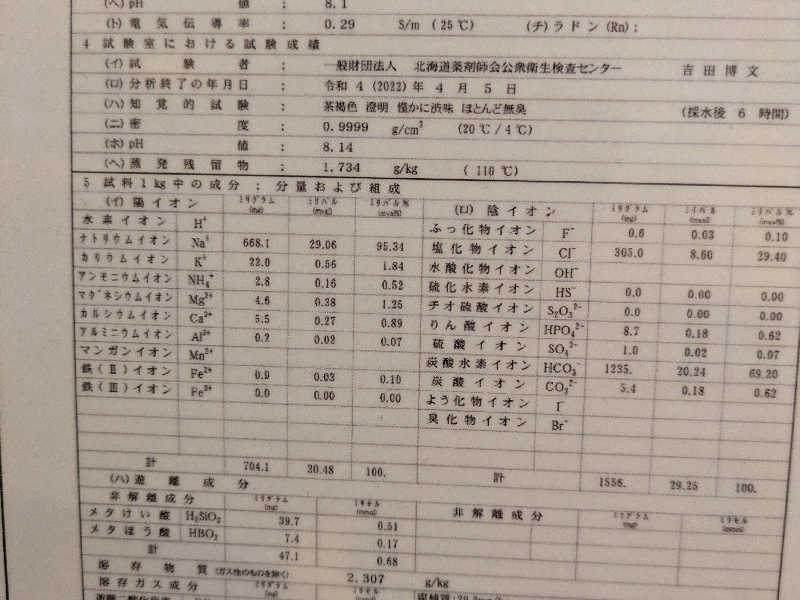 (ヘ) pH 値 : 8.1
(ト) 電気伝導率 : 0.29 S/m (25℃) (チ) ラドン (Rn) :
4 試験室における試験成績
(イ) 試験者 : 一般財団法人 北海道薬剤師会公衆衛生検査センター 吉田博文
(ロ) 分析終了の年月日 : 令和 4 (2022) 年 4 月 5 日
(ハ) 知覚的試験 : 茶褐色 澄明 僅かに渋味 ほとんど無臭 (採水後 6 時間)
(ニ) 密度 : 0.9999 g/cm³ (20℃/4℃)
(ホ) pH 値 : 8.14
(ヘ) 蒸発残留物 : 1.734 g/kg (110℃)
5 試料1kg中の成分 ; 分量および組成
(イ) 陽イオン ミリグラム (mg) ミリバル (mval) ミリバル% (mval%) (ロ) 陰イオン ミリグラム (mg) ミリバル (mval) ミリバル% (mval%)
水素イオン H⁺ ふっ化物イオン F⁻ 0.6 0.03 0.10
ナトリウムイオン Na⁺ 668.1 29.06 95.34 塩化物イオン Cl⁻ 305.0 8.60 29.40
カリウムイオン K⁺ 22.0 0.56 1.84 水酸化物イオン OH⁻
アンモニウムイオン NH₄⁺ 2.8 0.16 0.52 硫化水素イオン HS⁻ 0.0 0.00 0.00
マグネシウムイオン Mg²⁺ 4.6 0.38 1.25 チオ硫酸イオン S₂O₃²⁻ 0.0 0.00 0.00
カルシウムイオン Ca²⁺ 5.5 0.27 0.89 りん酸イオン HPO₄²⁻ 8.7 0.18 0.62
アルミニウムイオン Al³⁺ 0.2 0.02 0.07 硫酸イオン SO₄²⁻ 1.0 0.02 0.07
マンガンイオン Mn²⁺ 炭酸水素イオン HCO₃⁻ 1235. 20.24 69.20
鉄(Ⅱ)イオン Fe²⁺ 0.9 0.03 0.10 炭酸イオン CO₃²⁻ 5.4 0.18 0.62
鉄(Ⅲ)イオン Fe³⁺ 0.0 0.00 0.00 よう化物イオン I⁻
臭化物イオン Br⁻
計 704.1 30.48 100. 計 1556. 29.25 100.
(ハ) 遊離成分
非解離成分 ミリグラム (mg) ミリモル (mmol) 非解離成分 ミリグラム (mg) ミリモル (mmol)
メタけい酸 H₂SiO₃ 39.7 0.51
メタほう酸 HBO₂ 7.4 0.17
計 47.1 0.68
溶存物質 (ガス性のものを除く) 2.307 g/kg
溶存ガス成分 ミリグラム (mg) ミリモル